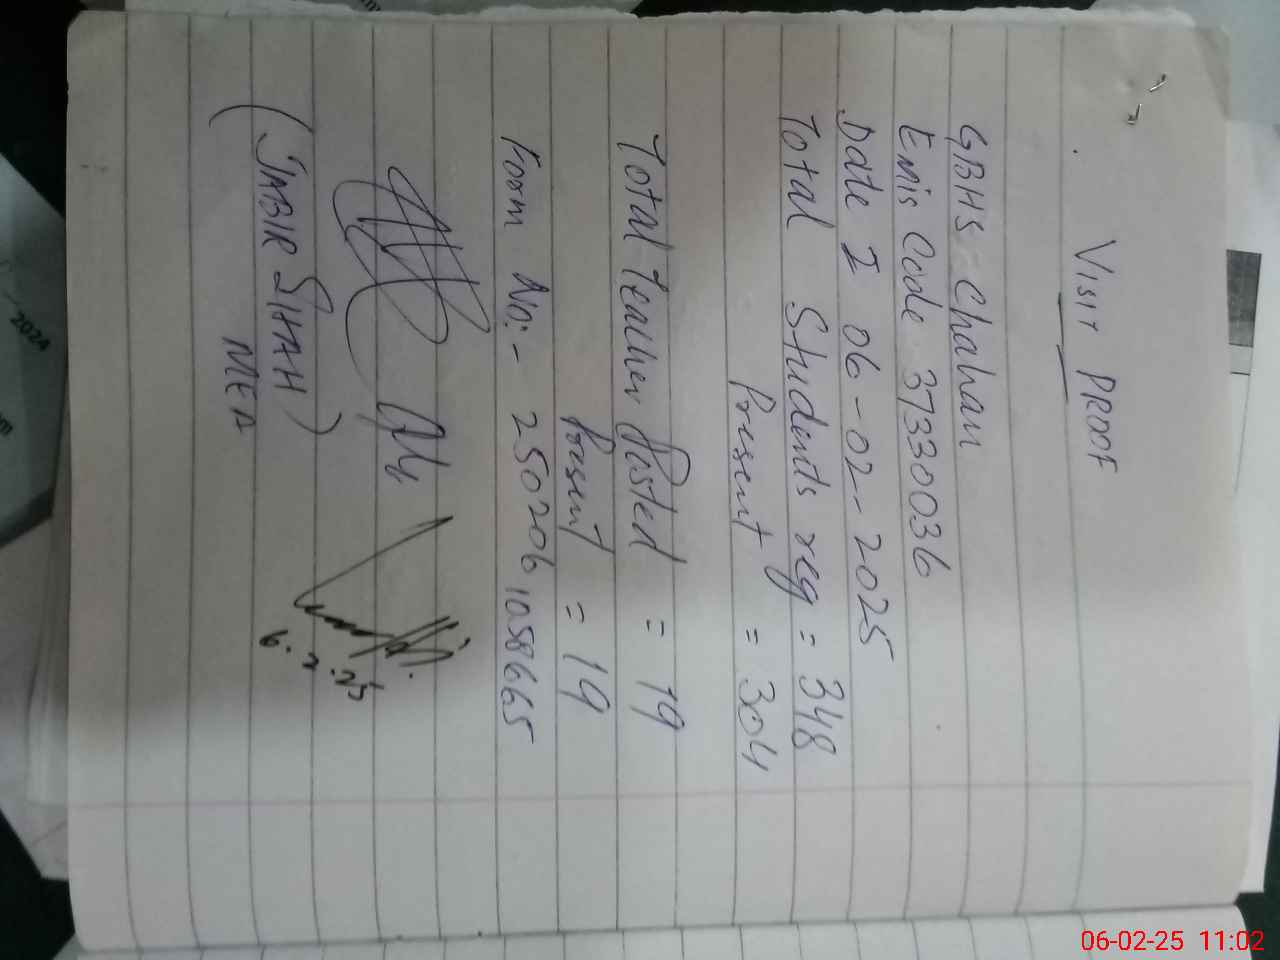 VISIT PROOF
GBHS Chahan
Emis Code 37330036
Date I 06-02-2025
Total Students reg = 348
Present = 304
Total teacher Posted = 19
Present = 19
Form No:- 250206 1058665
(JABIR SHAH)
MEA
6.2.25
2024
06-02-25 11:02